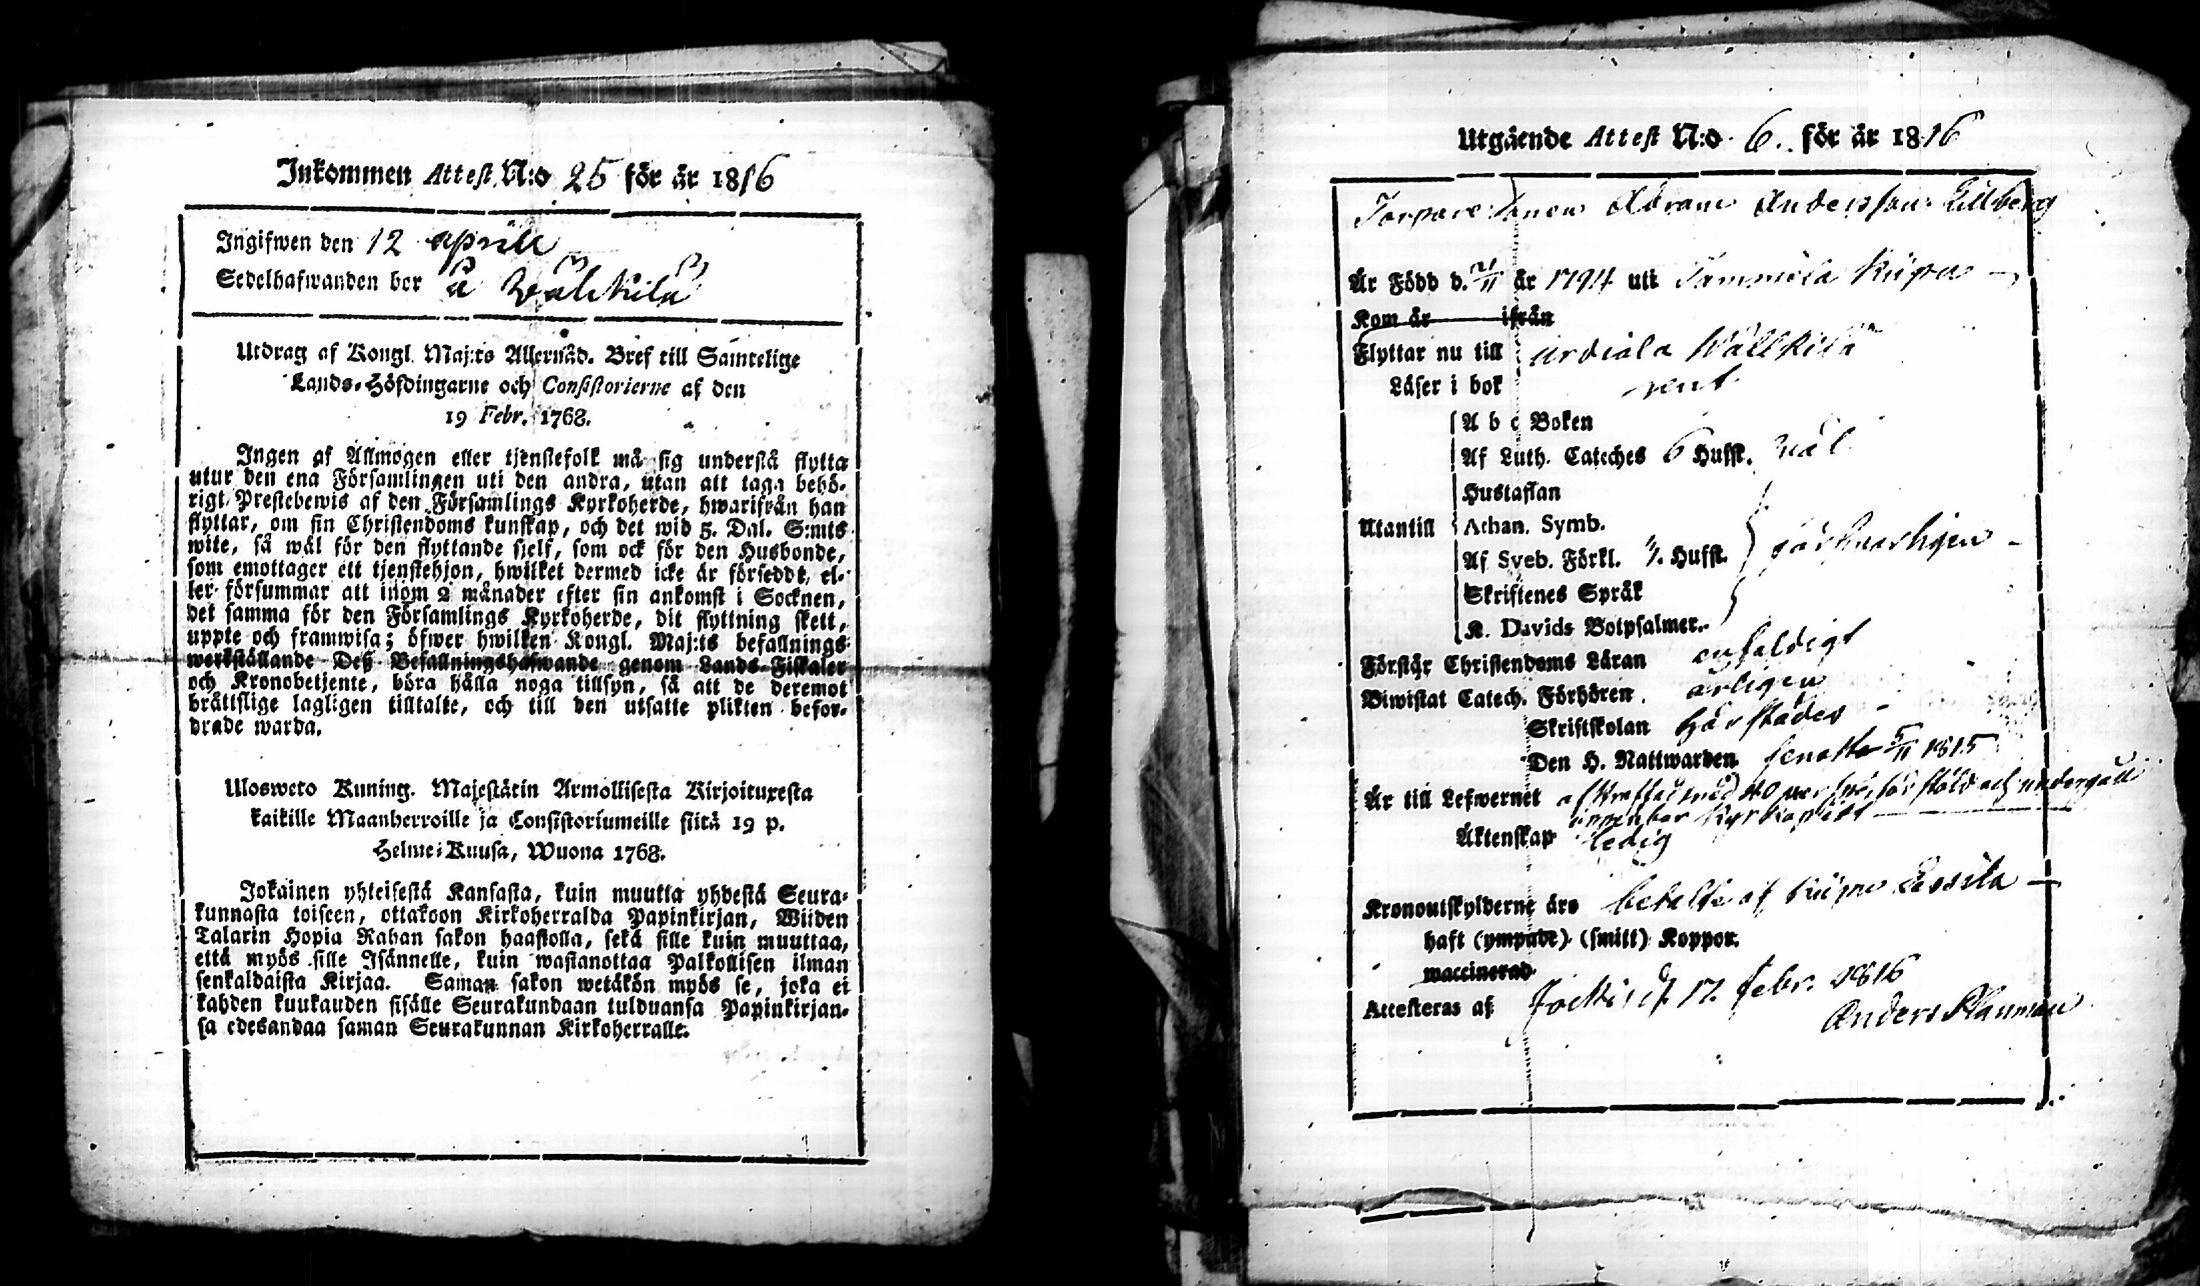 Inkommen Attest N:o 25 för år 1816
Ingifwen den 12 aprill
Sedelhafwanden bor å Wälkilä
Utdrag af Kongl. Maj:ts Allernåd. Bref till Samtelige
Lands-Höfdingarne och Consistorierne af den
19 Febr. 1768.
Ingen af Allmogen eller tjenstefolk må sig understå flytta
utur den ena Församlingen uti den andra, utan att taga behö-
rigt Prestebewis af den Församlings Kyrkoherde, hwarifrån han
flyttar, om sin Christendoms kunskap, och det wid 5. Dal. S:mts
wite, så wäl för den flyttande sjelf, som ock för den Husbonde,
som emottager ett tjenstehjon, hwilket dermed icke är försedt, el-
ler försummar att inom 2 månader efter sin ankomst i Socknen,
det samma för den Församlings Kyrkoherde, dit flyttning skett,
uppte och framwisa; öfwer hwilken Kongl. Maj:ts befallnings
werkställande Deß Befallningshafwande genom Lands-Fiskaler
och Kronobetjente, böra hålla noga tillsyn, så att de deremot
bråttslige lagligen tilltalte, och till den utsatte plikten befor-
drade warda.
Ulosweto Kuning. Majestätin Armollisesta Kirjoituxesta
kaikille Maanherroille ja Consistoriumeille siitä 19 p.
Helme-Kuusa, Wuona 1768.
Jokainen yhteisestä Kansasta, kuin muutta yhdestä Seura-
kunnasta toiseen, ottakoon Kirkoherralda Papinkirjan, Wiiden
Talarin Hopia Rahan sakon haastolla, sekä sille kuin muuttaa,
että myös sille Isännelle, kuin wastanottaa Palkollisen ilman
senkaldaista Kirjaa. Saman sakon wetäkön myös se, joka ei
kahden kuukauden sisälle Seurakundaan tulduansa Papinkirjan-
sa edesandaa saman Seurakunnan Kirkoherralle.
Utgående Attest N:o 6. för år 1816
Torpare Sonen Abram Andersson Lillberg
Är Född d. 21/11 år 1794 uti Tammela Kiipu
Kom år ifrån
Flyttar nu till Urdiala Wällkilä
Läser i bok rent
A b c Boken
Af Luth. Cateches 6 Hufst. väl
Hustaflan
Utantill Athan. Symb.
Af Sveb. Förkl. Hufst. försvarligen
Skriftenes Språk
K. Davids Botpsalmer.
Förstår Christendoms Läran enfaldigt
Biwistat Catech. Förhören årligen
Skriftskolan härstädes
Den H. Nattwarden senast 5/11 1815
Är till Lefwernet afstraffad med 40 par spö för stöld och undergått
uppenbar Kyrkoplikt
Äktenskap ledig
Kronoutskylderne äro betalte af Kiipu
haft (ympade) (smitt) Koppor.
waccinerad
Attesteras af Jockis d. 17. febr. 1816
Anders Planman